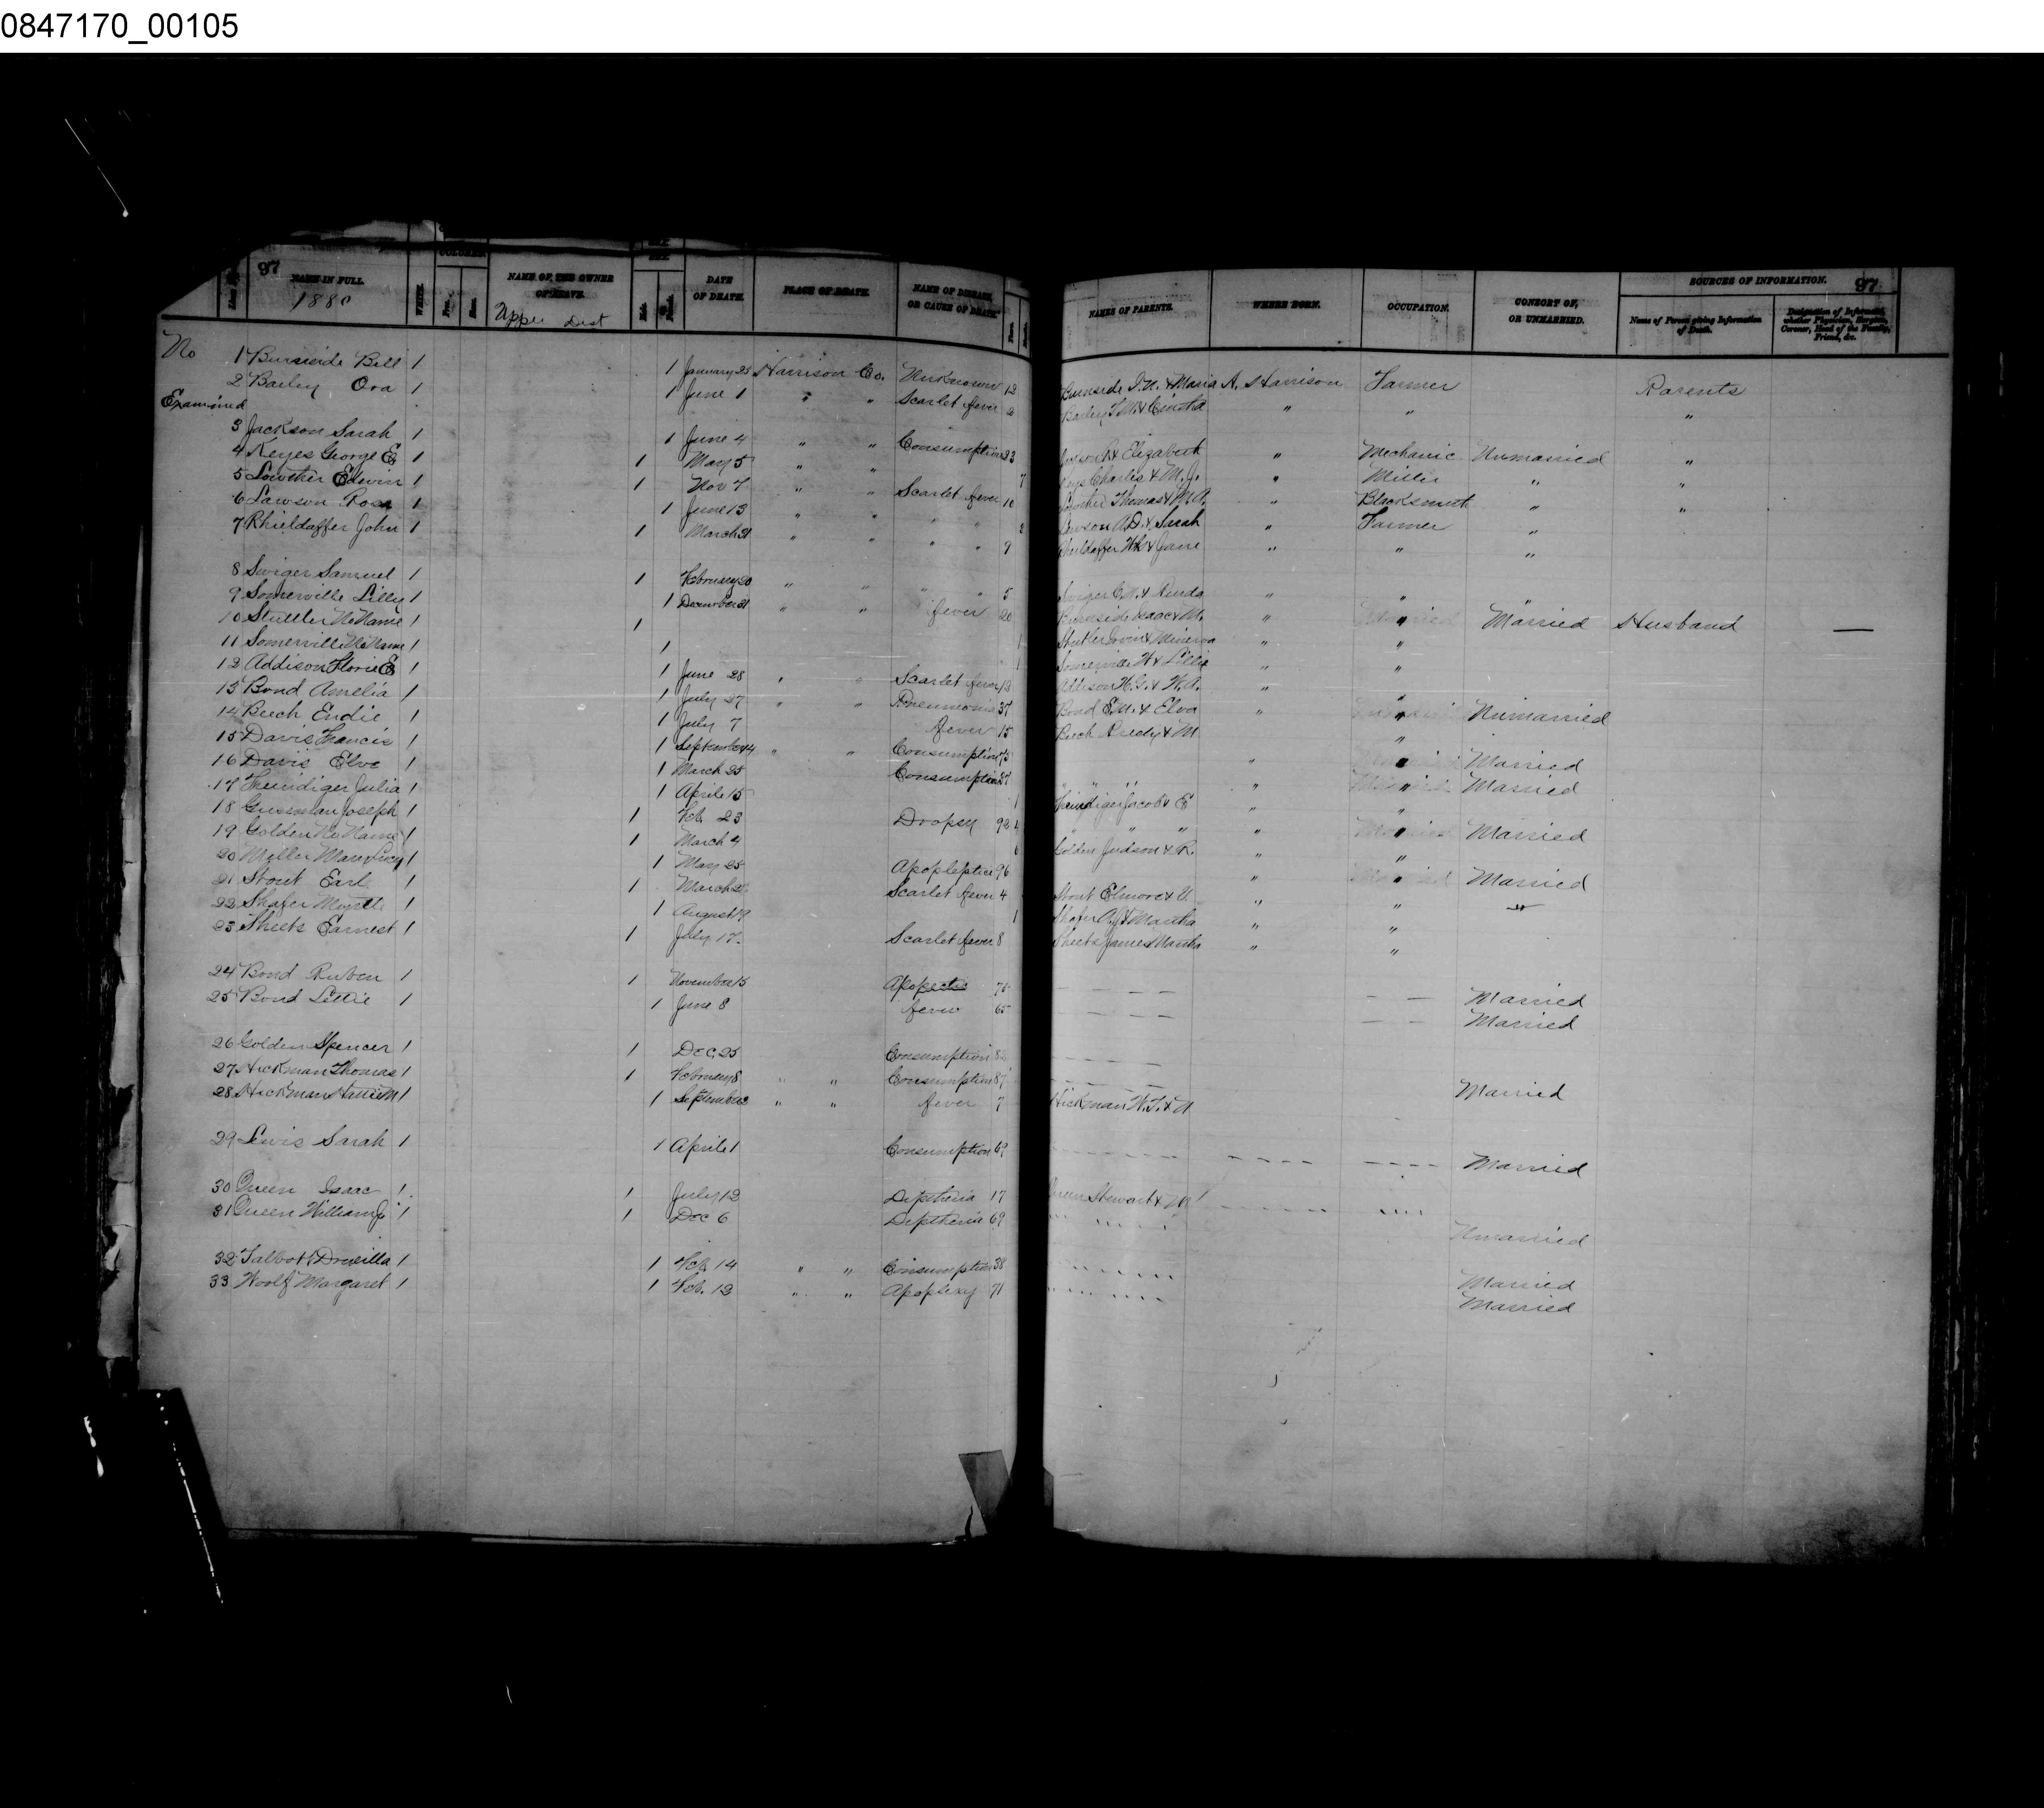 0847170_00105
97
NAME IN FULL.
1880
WHITE.
COLORED
Free.
Slave.
NAME OF THE OWNER
OF SLAVE.
Upper Dist
SEX.
Male.
Female.
DATE
OF DEATH.
PLACE OF DEATH.
NAME OF DISEASE,
OR CAUSE OF DEATH.
NAMES OF PARENTS.
WHERE BORN.
OCCUPATION.
CONSORT OF,
OR UNMARRIED.
SOURCES OF INFORMATION.
97
Name of Person giving Information
of Death.
Designation of Informant,
whether Physician, Surgeon,
Coroner, Head of the Family,
Friend, &c.
No
Examined
1 Burnside Bell 1 1 January 25 Harrison Co. Unknown 12 Burnside I. N. & Maria A. Harrison Farmer Parents
2 Bailey Ora 1 1 June 1 " " Scarlet fever 2 Bailey " " "
3 Jackson Sarah 1 1 June 4 " " Consumption 23 & Elizabeth " Mechanic Unmarried "
4 Keyes George E 1 1 May 5 " " 7 Keys Charles & M. J. " Miller " "
5 Lowther Edwin 1 1 Nov 7 " " Scarlet fever 10 Lowther Thomas & M. A. Blacksmith " "
6 Lawson Rosa 1 1 June 13 " " " " Lawson A. D. & Sarah " Farmer "
7 Rhieldaffer John 1 1 March 31 " " " " 9 Rhieldaffer & Jane " " "
8 Swiger Samuel 1 1 February 20 " " " " 5 Swiger & " "
9 Somerville Lilly 1 1 December 31 " " fever 20 Burnside Isaac & M. " " Married Husband —
10 Stutler No Name 1 1 1 Stutler & Minerva " "
11 Somerville No Name 1 1 1 Somerville & Lillie " "
12 Addison Florie E 1 1 June 28 " " Scarlet fever 12 Addison & " "
13 Bond Amelia 1 1 July 27 " " Pneumonia 37 Bond E. M. & Elva " " Unmarried
14 Beech Endie 1 1 July 7 fever 15 Beech & M "
15 Davis Francis 1 1 September 4 " " Consumption 75 " " Married
16 Davis Elva 1 1 March 25 Consumption " " " " Married
17 Heindiger Julia 1 1 April 15 1 Heindiger Jacob & E " "
18 Gusman Joseph 1 1 Feb 23 Dropsy 92 " " " " " Married
19 Golden No Name 1 1 March 4 6 Golden Judson & R. " "
20 Miller Mary Lucy 1 1 May 25 Apopleptice 96 " " Married
21 Stout Earl 1 1 March Scarlet fever 4 Stout Elmore & V. " " "
22 Shafer Myrtle 1 1 August 19 1 Shafer & Martha " "
23 Sheets Earnest 1 1 July 17 Scarlet fever 8 Sheets James Martha " "
24 Bond Ruben 1 1 November 15 75 Married
25 Bond Lettie 1 1 June 8 fever 65 Married
26 Golden Spencer 1 1 Dec 25 Consumption 82
27 Hickman Thomas 1 1 February 8 " " Consumption 87 Married
28 Hickman Hattie M 1 1 September " " fever 7 Hickman
29 Lewis Sarah 1 1 April 1 Consumption 69 Married
30 Queen Isaac 1 1 July 12 Diptheria 17 Queen Stewart & M
31 Queen William J 1 1 Dec 6 Diptheria 69 Unmarried
32 Talbott Drucilla 1 1 Feb. 14 " " Consumption 38 Married
33 Woolf Margaret 1 1 Feb. 12 " " Apoplexy 71 Married